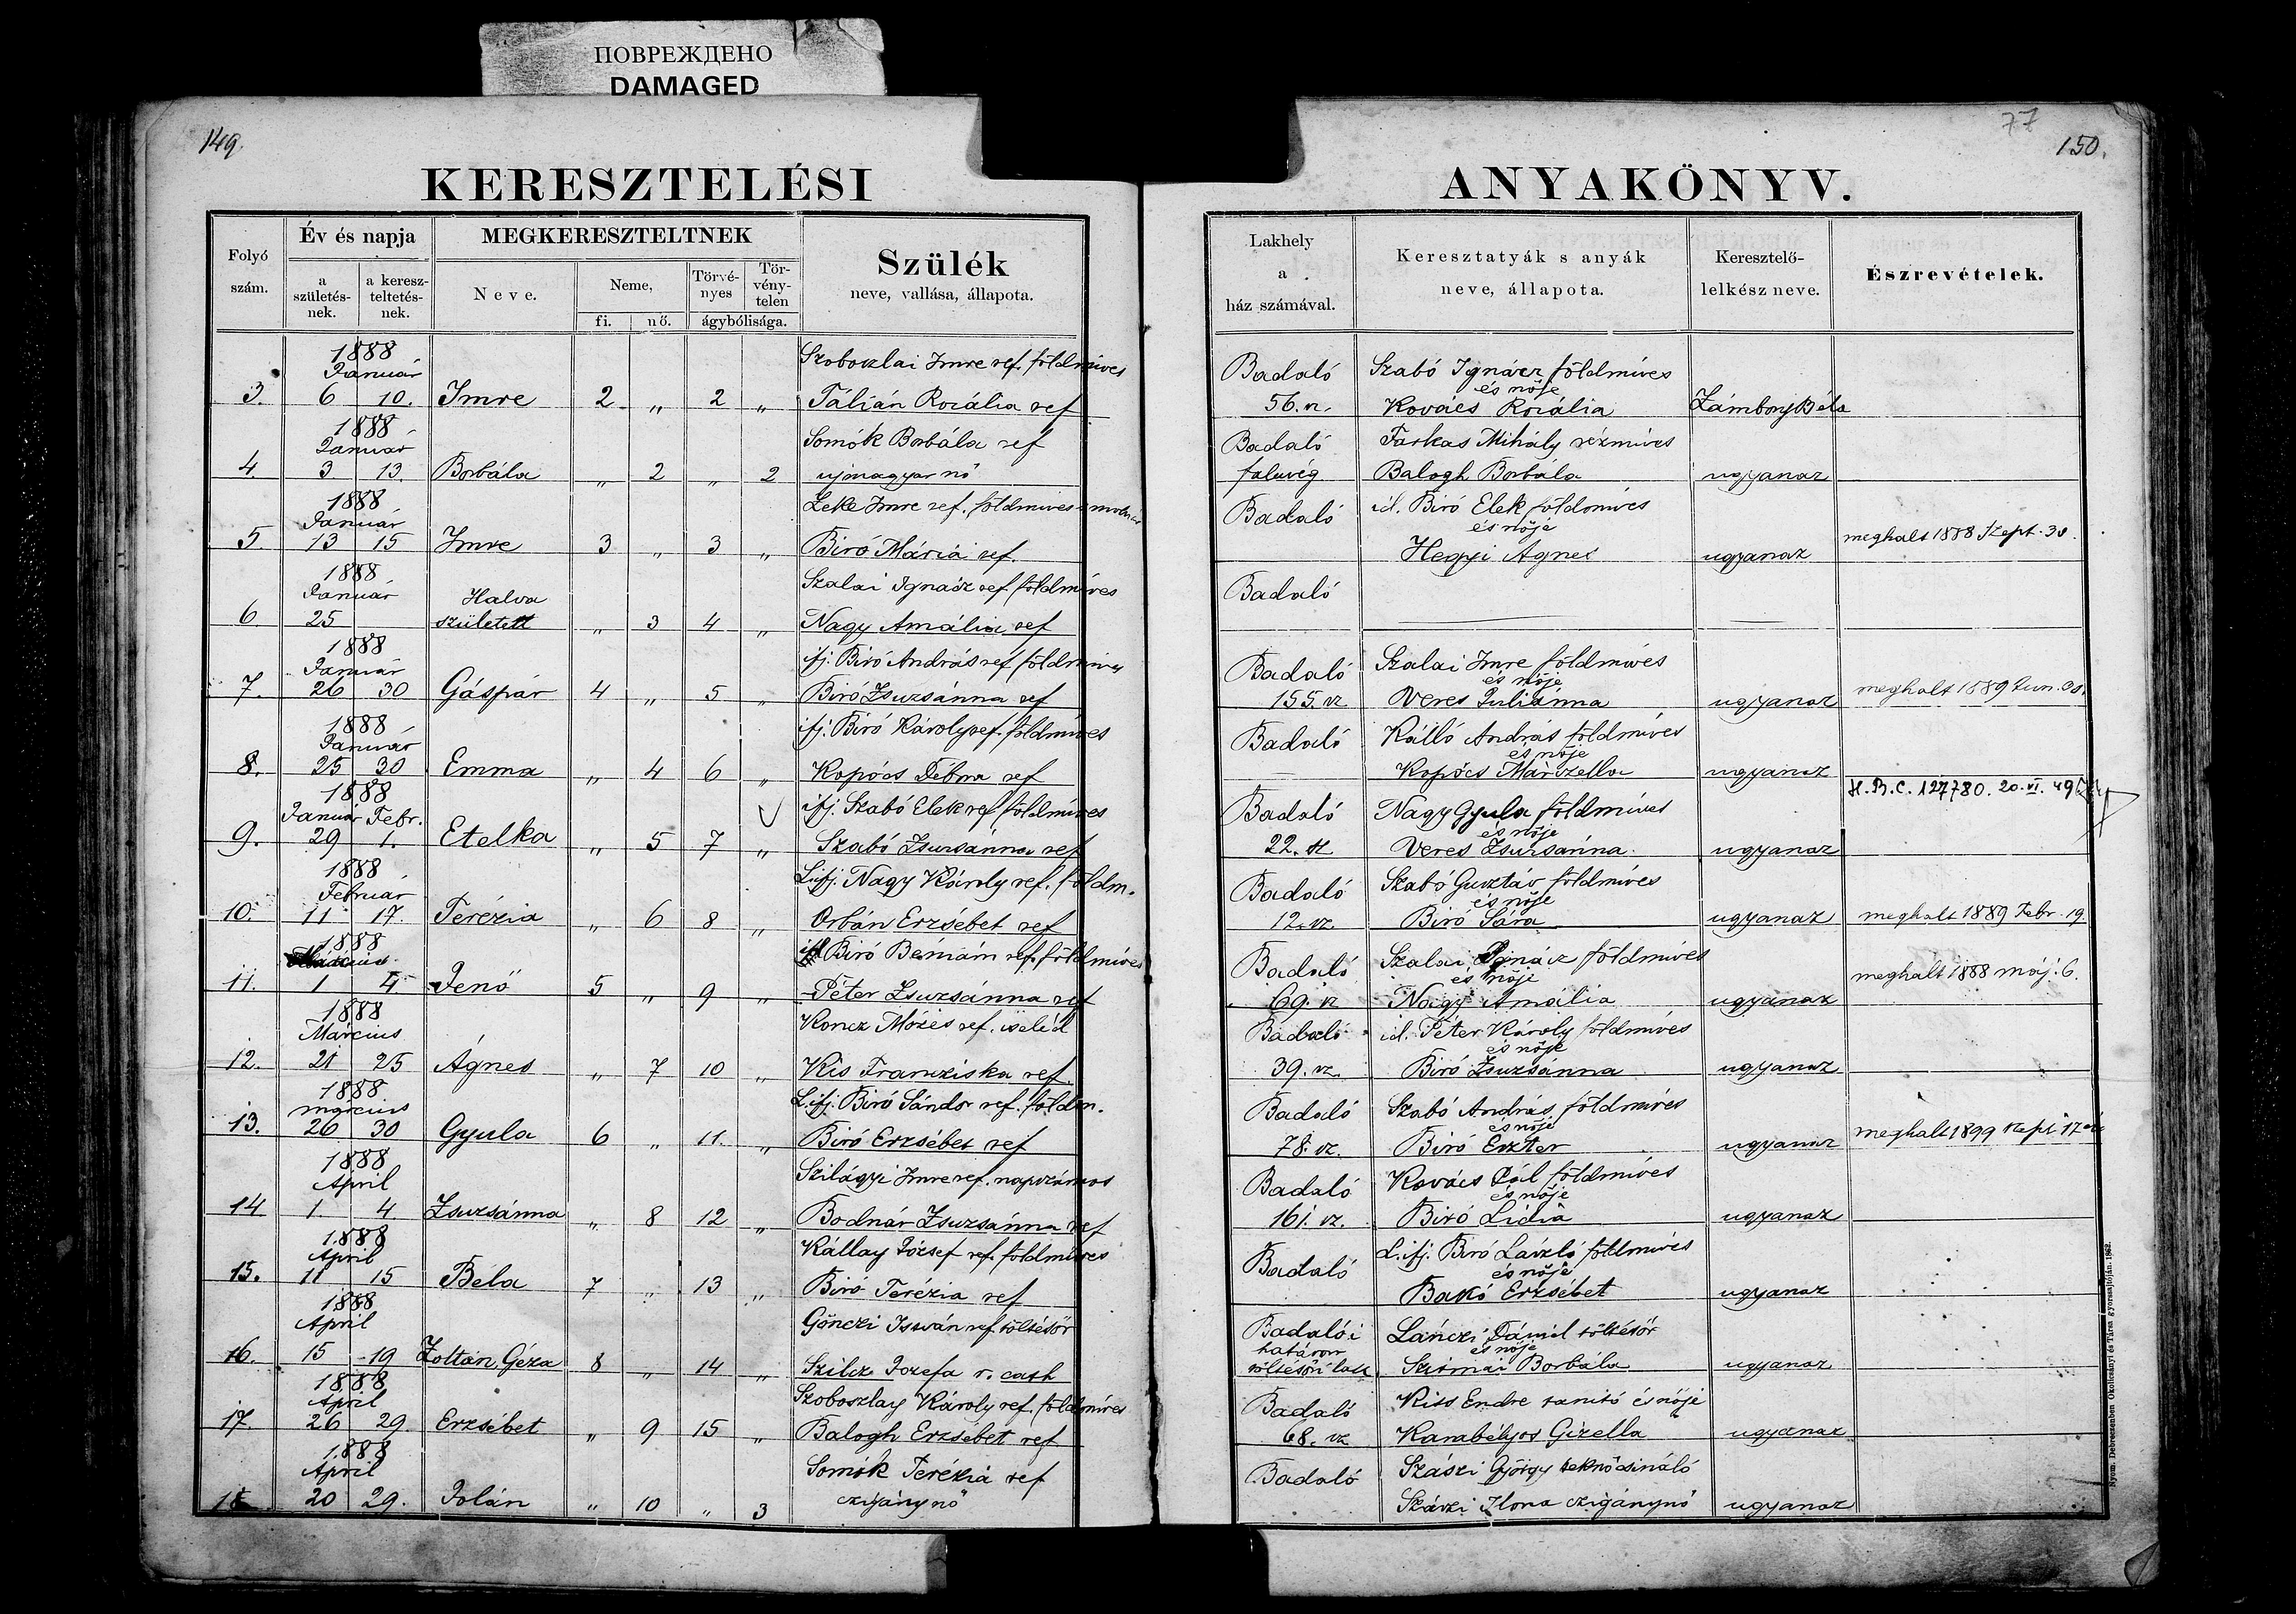 ПОВРЕЖДЕНО
DAMAGED
149.
77
150.
KERESZTELÉSI
ANYAKÖNYV.
Folyó szám.
Év és napja
a születés-nek.
a keresz-teltetés-nek.
MEGKERESZTELTNEK
Neve.
Neme,
fi.
nő.
Törvé-nyes
Tör-vény-telen
ágybólisága.
Szülék
neve, vallása, állapota.
Lakhely
a
ház számával.
Keresztatyák s anyák
neve, állapota.
Keresztelő-
lelkész neve.
Észrevételek.
1888
Január
Szoboszlai Imre ref. földmíves
Badaló
Szabó Ignácz földmíves
és nője
3. 6 10. Imre 2 „ 2 „ Tálián Rozália ref
56. sz. Kovács Rozália Zámbory Béla
1888
Január
Somók Borbála ref
Badaló
Farkas Mihály rézmíves
4. 3 13. Borbála „ 2 „ 2 ujmagyar nő
faluvég Balogh Borbála ugyanaz
1888
Január
Leke Imre ref. földmives
Badaló
id. Biró Elek földmíves
és nője
5. 13 15 Imre 3 „ 3 „ Biró Mária ref.
Hegyi Ágnes ugyanaz meghalt 1888 Szept. 30.
1888
Január
Szalai Ignácz ref. földmíves
Badaló
6 25 Halva született „ 3 4 „ Nagy Amália ref
1888
Január
ifj. Biró András ref földmíves
Badaló
Szalai Imre földmíves
és nője
7. 26 30 Gáspár 4 „ 5 „ Biró Zsuzsánna ref
155. sz Veres Juliánna ugyanaz meghalt 1889 Jun. 30.
1888
Január
ifj. Biró Károly ref. földmíves
Badaló
Kálló András földmíves
és nője
8. 25 30 Emma „ 4 6 „ Kopócs Debora ref
Kopócs Márczella ugyanaz
H.B.C. 127780. 20. VI. 49
1888
Január Febr.
ifj. Szabó Elek ref földmíves
Badaló
Nagy Gyula földmíves
és nője
9. 29 1. Etelka „ 5 7 „ Szabó Zsuzsánna ref
22. sz Veres Zsuzsánna. ugyanaz
1888
Február
L. ifj. Nagy Károly ref. földm.
Badaló
Szabó Gusztáv földmíves
és nője
10. 11 17. Terézia „ 6 8 „ Orbán Erzsébet ref
12. sz. Biró Sára ugyanaz meghalt 1889 Febr. 19.
1888
Március
Biró Beniám ref. földmíves
Badaló
Szalai Ignácz földmíves
és nője
11. 1 4. Jenő 5 „ 9 „ Péter Zsuzsánna ref
69. sz Nagy Amália ugyanaz meghalt 1888 máj. 6.
1888
Március
Koncz Mózes ref. cseléd
Badaló
id. Péter Károly földmíves
és nője
12. 21 25 Ágnes „ 7 10 „ Kis Francziska ref.
39. sz. Biró Zsuzsánna ugyanaz
1888
március
L. ifj. Biró Sándor ref. földm.
Badaló
Szabó András földmíves
és nője
13. 26 30 Gyula 6 „ 11. „ Biró Erzsébet ref
78. sz. Biró Eszter ugyanaz meghalt 1899 szept 17én
1888
April
Szilágyi Imre ref. napszámos
Badaló
Kovács Pál földmíves
és nője
14 1. 4. Zsuzsánna „ 8 12 „ Bodnár Zsuzsánna ref
161. sz. Biró Lidia ugyanaz
1888
April
Kállay József ref. földmíves
Badaló
L. ifj. Biró László földmíves
és nője
15. 11 15 Béla 7 „ 13 „ Biró Terézia ref
Bakó Erzsébet ugyanaz
1888
April
Gönczi István ref töltésőr
Badalói
határon
Lánczi Dániel töltésőr
és nője
16. 15 19 Zoltán, Géza 8 „ 14 „ Szilcz Jozefa r. cath
töltésőri lak. Szirmai Borbála ugyanaz
1888
April
Szoboszlay Károly ref. földmíves
Badaló
Kiss Endre tanító és nője
17. 26 29. Erzsébet „ 9 15 „ Balogh Erzsébet ref
68. sz Karabélyos Gizella ugyanaz
1888
April
Somók Terézia ref
Badaló
Szászi György teknőcsináló
18 20 29. Jolán „ 10 „ 3 czigány nő
Szászi Ilona czigánynő ugyanaz
Nyom. Debreczenben Okolicsányi és Társa gyorssajtóján. 1862.